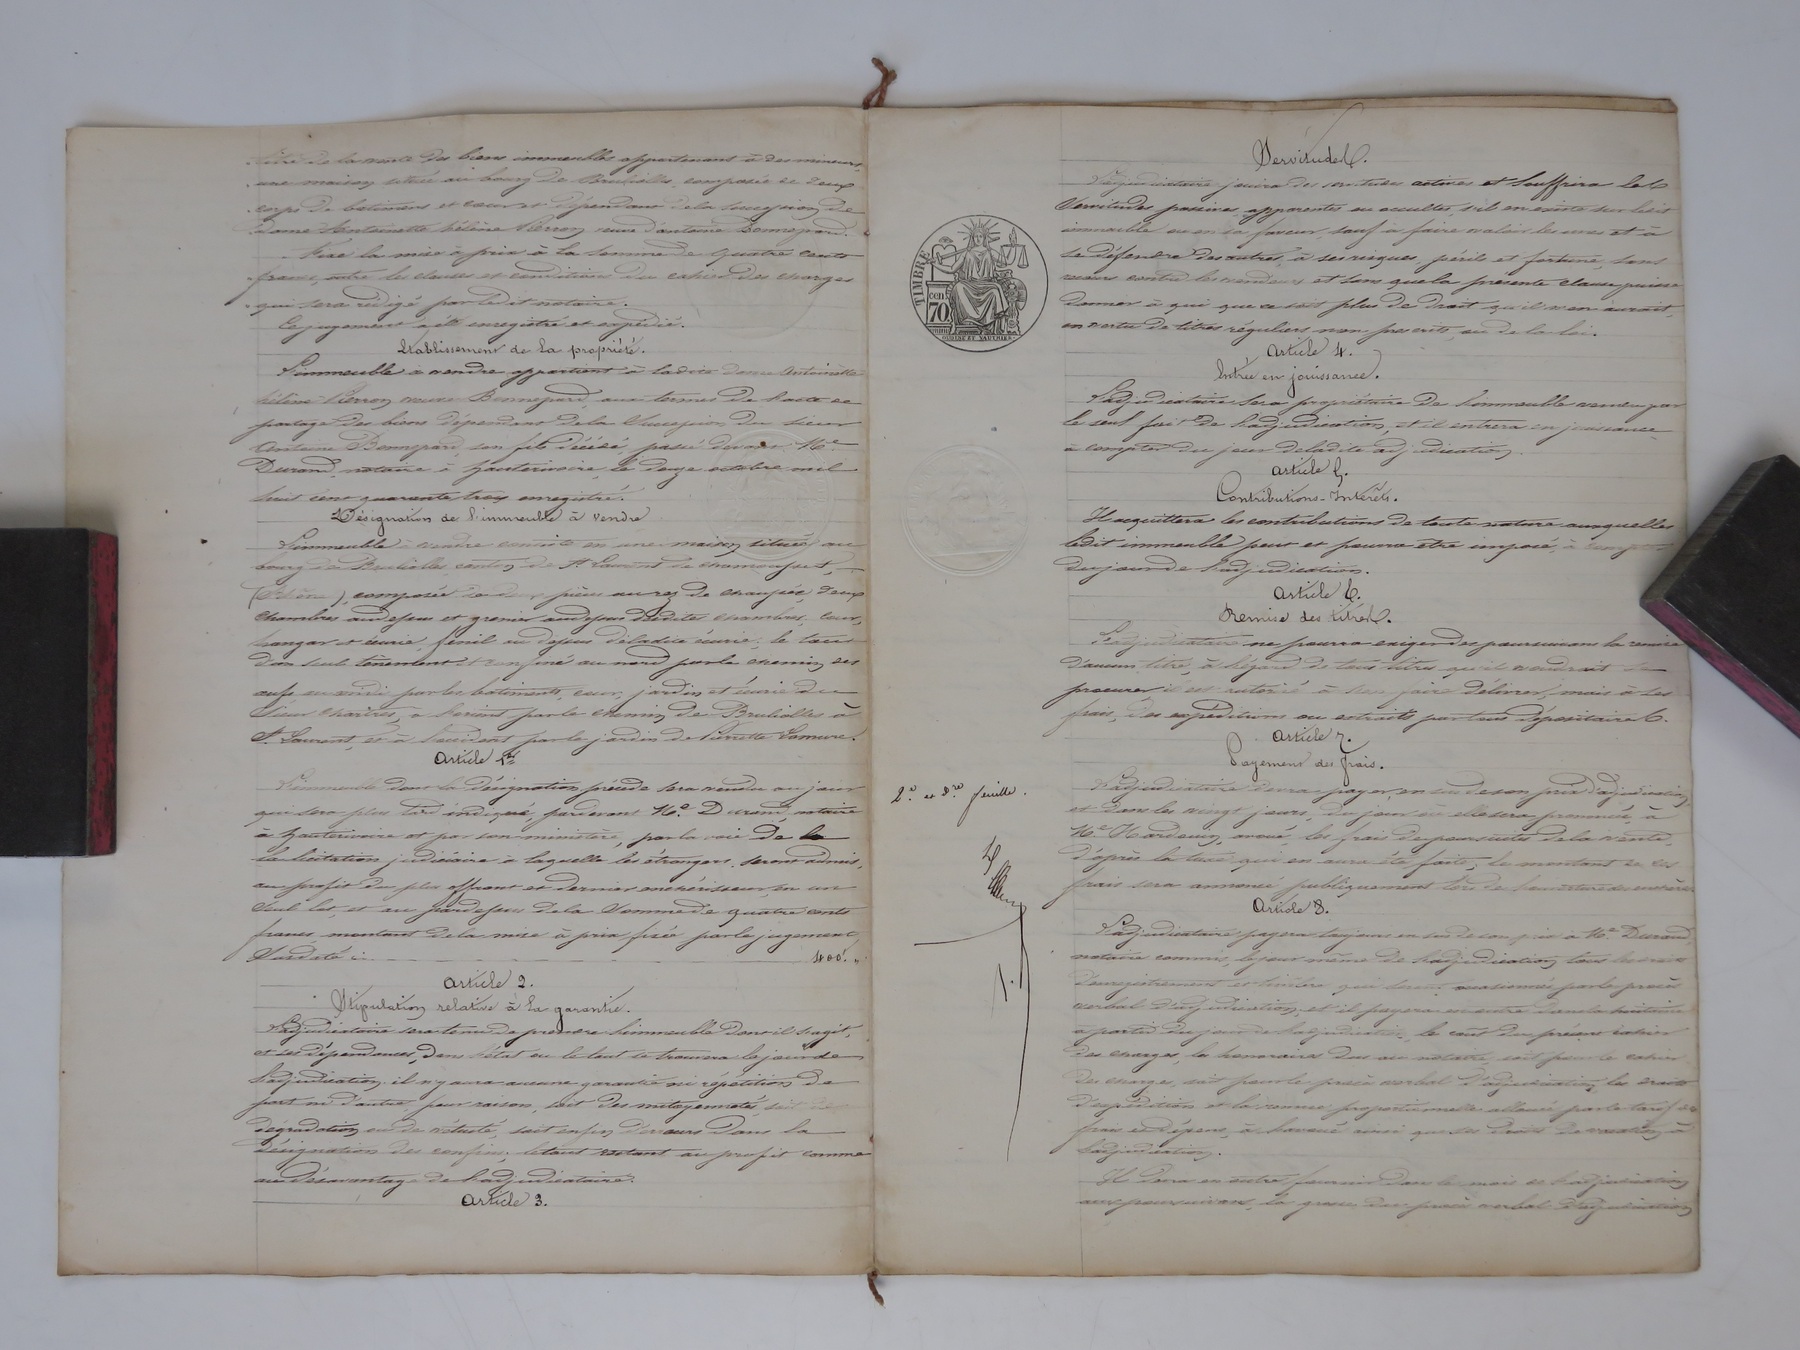 titre de la vente des biens immeubles appartenant à des mineurs,
une maison située au bourg de Brullioles, composée de deux
corps de batiment et cour et dépendant de la succession de
dame Antoinette hélène Perron veuve d'antoine Bonnepard.
Fixe la mise à prix à la somme de quatre cents
francs, outre les clauses et condition du cahier des charges
qui sera rédigé par ledit notaire.
Ce jugement a été enregistré et expédié.
Etablissement de la propriété.
L'immeuble à vendre appartient à ladite dame Antoinette
hélène Perron veuve Bonnepard, aux termes de l'acte de
partage des biens dépendant de la succession du sieur
Antoine Bonnepard, son fils décédé, passé devant Me
Durand, notaire à hauterivoire, le douze octobre mil
huit cent quarante trois enregistré.
Désignation de l'immeuble à vendre
L'immeuble à vendre consiste en une maison située au
bourg de Brullioles canton de St Laurent de chamousset,
(Rhône), composée de deux pièces au rez de chaussée, deux
chambres au dessus et grenier au dessus desdites chambres, cour,
hangar et écurie, fenil au dessus de ladite écurie; le tout
d'un seul tènement et confiné au nord par le chemin des
au midi par les batiments, cour, jardin et écurie du
sieur Chartres, à l'orient par le chemin de Brullioles à
St Laurent, et à l'occident par le jardin de Pierrette Lamure.
Article 1er
L'immeuble dont la désignation précède sera vendu au jour
qui sera plus tard indiqué, pardevant Me Durand, notaire
à hauterivoire et par son ministère, par la voie de la
la licitation judiciaire à laquelle les étrangers seront admis,
au profit du plus offrant et dernier enchérisseur, en un
seul lot, et au pardessus de la somme de quatre cents
francs montant de la mise à prix fixée par le jugement
susdaté ci 400. "
Article 2.
Stipulation relative à la garantie.
L'adjudicataire sera tenu de prendre l'immeuble dont il s'agit,
et ses dépendances, dans l'état ou le tout se trouvera le jour de
l'adjudication il n'y aura aucune garantie ni répétition de
part ni d'autre, pour raison, soit des mitoyennetés, soit de
dégradation ou de vétusté, soit enfin d'erreurs dans la
désignation des confins; le tout restant au profit comme
au désavantage de l'adjudicataire.
Article 3.
Servitudes.
L'adjudicataire jouira des servitudes actives et souffrira les
servitudes passives, apparentes ou occultes, s'il en existe sur ledit
immeuble ou en sa faveur, sauf à faire valoir les unes et à
se défendre des autres, à ses risques, périls et fortune, sans
recours contre les vendeurs et sans que la présente clause puisse
donner à qui que ce soit plus de droit qu'il n'en aurait,
en vertu de titres réguliers non prescrits, ou de la loi.
Article 4.
Entrée en jouissance.
L'adjudicataire sera propriétaire de l'immeuble vendu par
le seul fait de l'adjudication, et il entrera en jouissance
à compter du jour de ladite adjudication.
Article 5.
Contributions - Intérêts.
Il acquittera les contributions de toute nature auxquelles
ledit immeuble peut et pourra être imposé, à compter
du jour de l'adjudication.
Article 6.
Remise des titres.
L'adjudicataire ne pourra exiger des poursuivans la remise
d'aucun titre, à l'égard de tous titres qu'il voudrait se
procurer il est autorisé à s'en faire délivrer, mais à ses
frais, des expéditions ou extraits par tous dépositaires.
Article 7.
Payement des frais.
L'adjudicataire devra payer, en sus de son prix d'adjudication,
et dans les vingt jours, du jour où elle sera prononcée, à
Me avoué, les frais de poursuites de la vente,
d'après la taxe qui en aura été faite, le montant de ces
frais sera annoncé publiquement lors de l'ouverture des enchères
Article 8.
L'adjudicataire payera toujours en sus de son prix à Me Durand
notaire commis, le jour même de l'adjudication, tous les droits
d'enregistrement et timbre qui seront occasionnés par le procès
verbal d'adjudication, et il payera en outre dans la huitaine
à partir du jour de l'adjudication, le coût du présent cahier
des charges, les honoraires dus au notaire, soit pour le cahier
des charge, soit pour le procès verbal d'adjudication, les droits
d'expédition et la remise proportionnelle allouée par le tarif des
frais et dépens, à l'avoué ainsi que ses droits de vacation à
l'adjudication.
Il devra en outre fournir dans le mois de l'adjudication
aux poursuivans, la grosse du procès verbal d'adjudication
TIMBRE
cent.
70
2e et dre feuille.